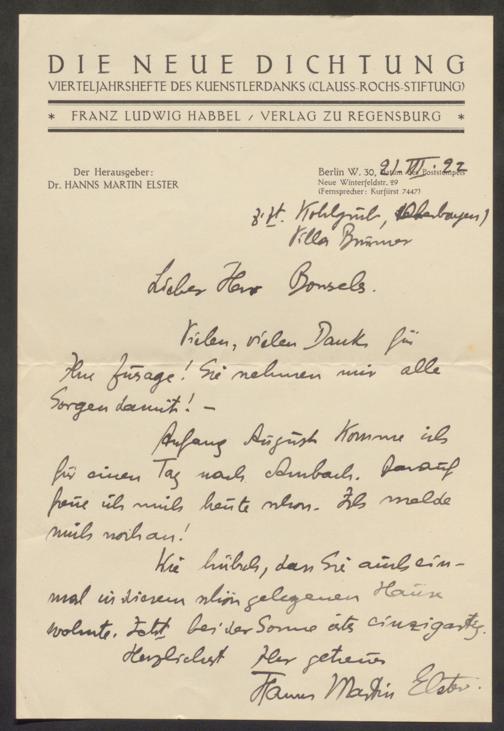 DIE NEUE DICHTUNG
VIERTELJAHRSHEFTE DES KUENSTLERDANKS (CLAUSS-ROCHS-STIFTUNG)
* FRANZ LUDWIG HABBEL / VERLAG ZU REGENSBURG *
Der Herausgeber:
Dr. HANNS MARTIN ELSTER
Berlin W. 30, Datum des Poststempels
Neue Winterfeldstr. 29
(Fernsprecher: Kurfürst 7447)
21.VII.22
z. Zt. Kohlgrub, (Oberbayern)
Villa Brunner
Lieber Herr Bonsels.
Vielen, vielen Dank für
Ihre Zusage! Sie nehmen mir alle
Sorgen damit! –
Anfang August komme ich
für einen Tag nach Ambach. Darauf
freue ich mich heute schon. Ich melde
mich noch an!
Wie hübsch, dass Sie auch ein-
mal in diesem schön gelegenen Hause
wohnte. Jetzt bei der Sonne ists einzigartig.
Herzlichst Ihr getreuer
Hanns Martin Elster.